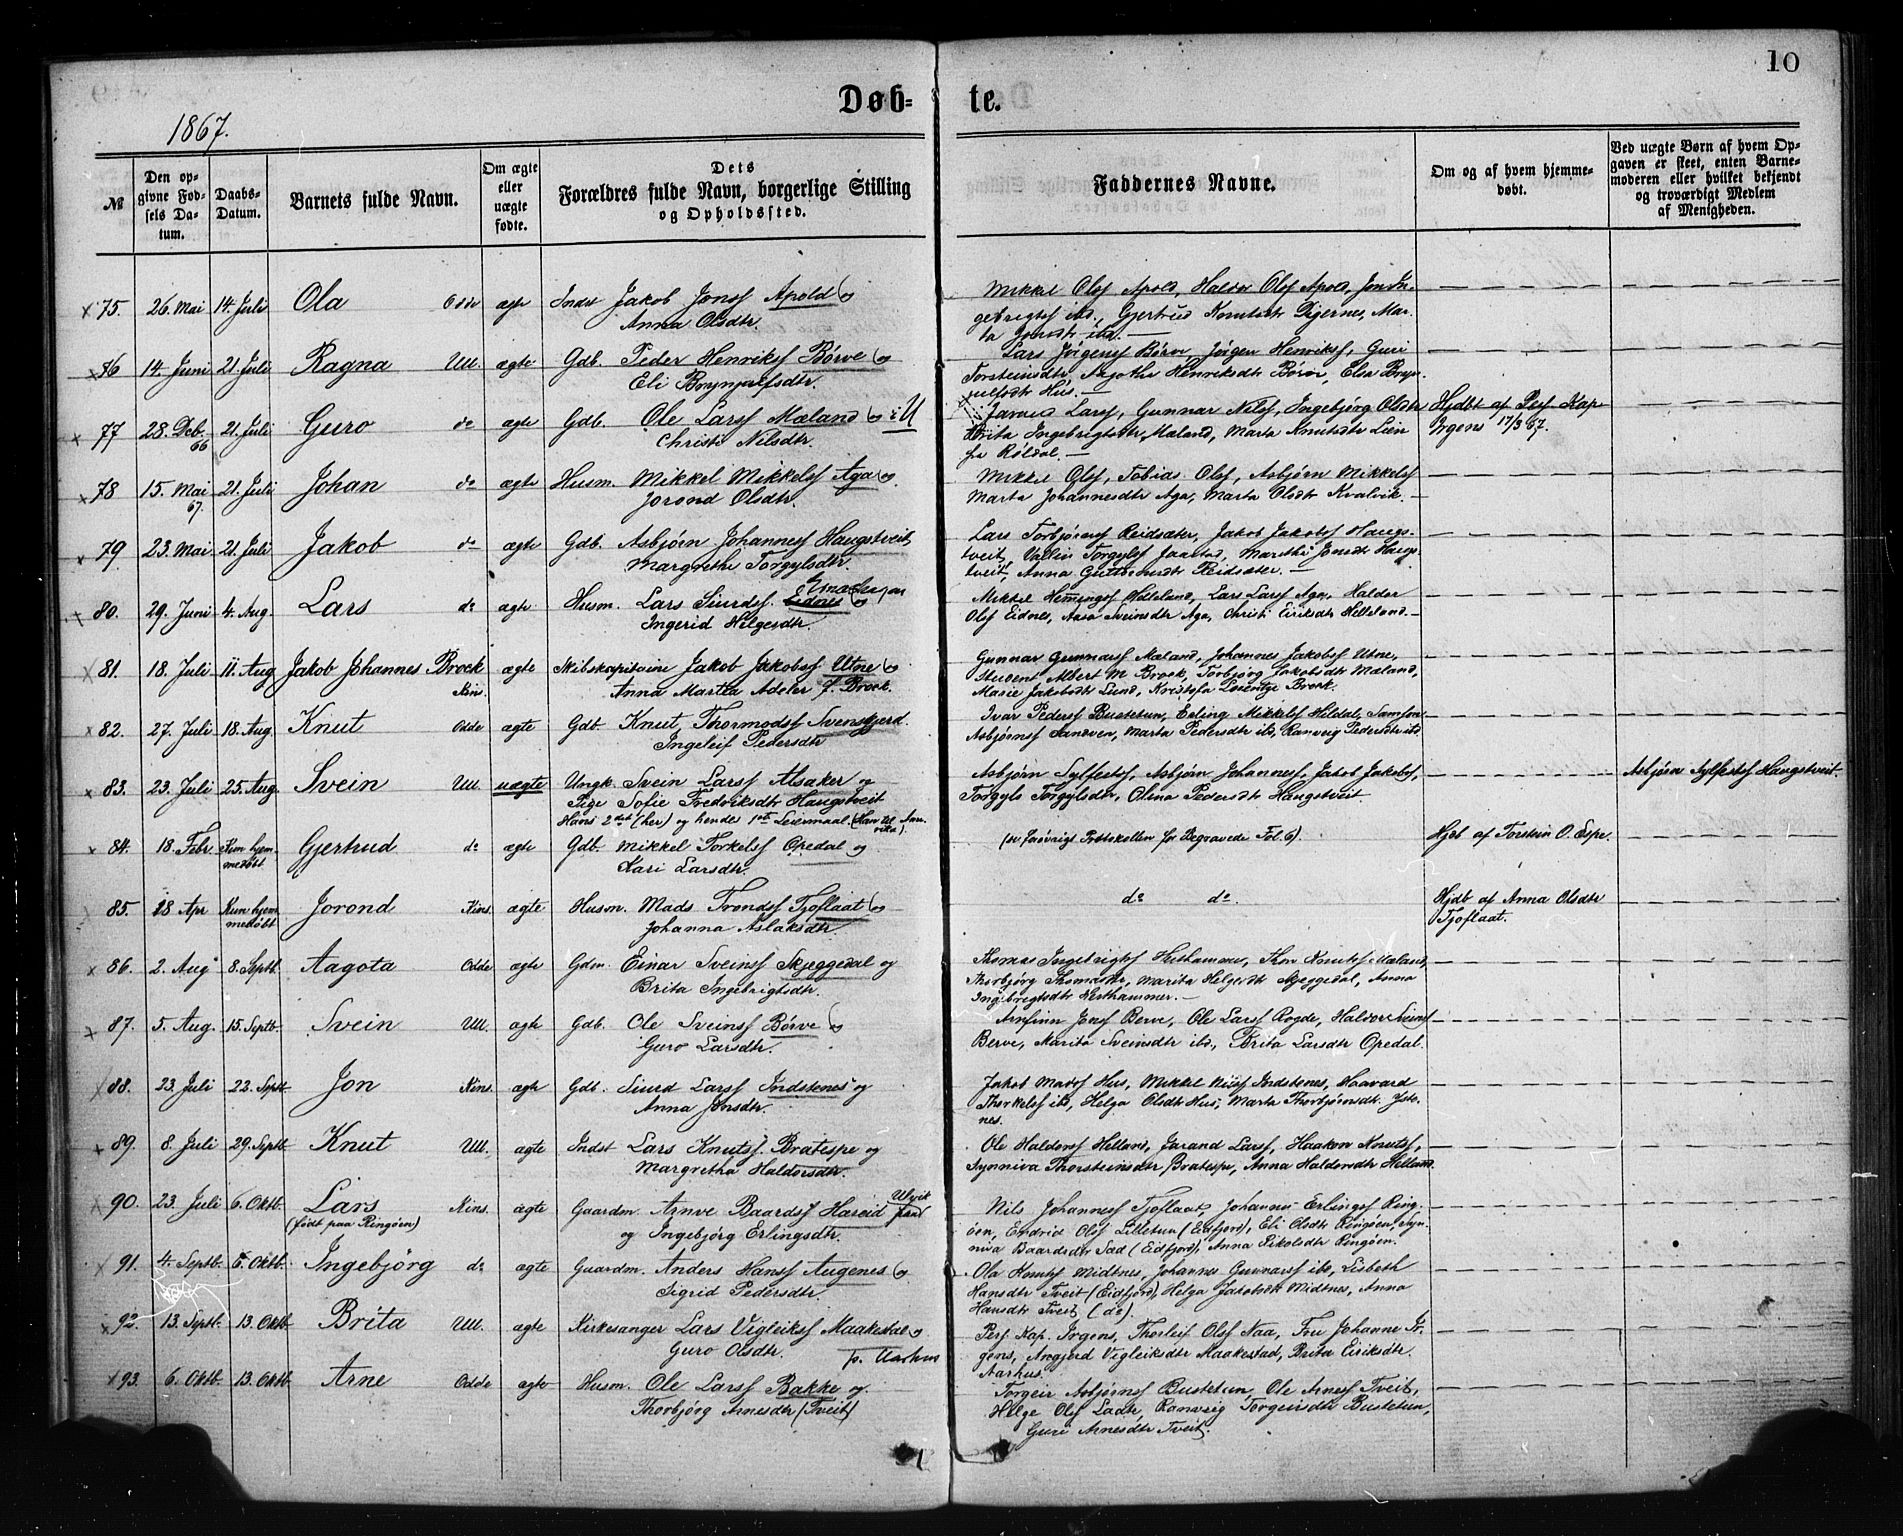 10
Døb- te.
1867.
№
Den opgivne Fødsels Datum.
Daabs-Datum.
Barnets fulde Navn.
Om ægte eller uægte fødte.
Dets Forældres fulde Navn, borgerlige Stilling og Opholdssted.
Faddernes Navne.
Om og af hvem hjemmedøbt.
Ved uægte Børn af hvem Opgaven er skeet, enten Barnemoderen eller hvilket bekjendt og troværdigt Medlem af Menigheden.
75. 26. Mai 14. Juli Ola Odde ægte Indst Jakob Jonss Apold og
Anna Olsdtr.
Mikkel Olss Apold, Haldor Olss Apold, Jon In-
gebrigtss ibd., Gjertrud Knutsdtr Digernes, Mar-
ta Jonsdtr ibd. —
76 14. Juni 21. Juli Ragna Ull. ægte Gdb. Peder Henrikss Børve og
Eli Brynjulfsdtr.
Lars Jørgenss Børve, Jørgen Henrikss, Guri
Torsteinsdtr, Aagothe Henriksdtr Børve, Elsa Bryn-
julfsdtr Hus.
77 28. Deb. 66 21. Juli Guro do ægte Gdb. Ole Larss Mæland og i U
Christi Nilsdtr.
Larss, Gunnar Nilss, Ingebjørg Olsdtr
Brita Ingebrigtsdtr Mæland, Marta Knutsdtr Lien
fra Røldal. —
Hjdbt af Pers Kap
Irgens 17/3 67.
78 15. Mai 67. 21. Juli Johan do ægte Husm. Mikkel Mikkelss Aga og
Jorond Olsdtr.
Mikkel Olss, Tobias Olss, Asbjørn Mikkelss
Marta Johannesdtr Aga, Marta Olsdtr Kvalvik. —
79. 23. Mai 21. Juli Jakob do ægte Gdb. Asbjørn Johanness Haugstveit
Margrethe Torgylsdtr.
Lars Torbjørnss Reidsæter, Jakob Jakobss Haugs-
tveit, Torgylss Jaastad, Marithe Jonsdtr Haugs-
tveit, Anna Guttormsdtr Reidsæter. —
80. 29. Juni 4. Aug. Lars do ægte Husm. Lars Siurdss. Eidnes og
Ingerid Helgesdtr.
Mikkel Hemingss Helleland, Lars Larss Aga, Haldor
Olss Eidnes, Aasa Sveinsdtr Aga, Christi Eiriksdtr Helleland. —
81. 18. Juli 11. Aug Jakob Johannes Brock Kins. ægte Skibskapitaine Jakob Jakobss Utne og
Anna Martha Adeler f. Brock.
Gunnar Gunnarss Mæland, Johannes Jakobss Utne,
Student Albert M Brock, Torbjørg Jakobsdtr Mæland,
Marie Jakobsdtr Lund, Kristofa Lorentze Brock.
82. 27. Juli 18. Aug. Knut Odde ægte Gdb. Knut Thormodss Svenskjerd.
Ingeleif Pedersdtr
Ivar Pederss Bustetun, Erling Mikkelss Hildal, Samson
Asbjørnss Sandven, Marta Pedersdtr ibd, Ranveig Pedersdtr ibd
83. 23. Juli 25. Aug. Svein Ull. uægte Ungk. Svein Larss Alsaker og
Pige Sofie Fredriksdtr Haugstveit
Hans 2det (her) og hendes 1ste Leiermaal
Asbjørn Sylfestss, Asbjørn Johanness, Jakob Jakobss,
Torgyls Torgylsdtr, Olina Pedersdtr Haugstveit.
Asbjørn Sylfestss Haugstveit.
84. 18. Febr Kun hjem-
medøbt Gjertrud do ægte Gdb. Mikkel Torkelss Opedal og
Kari Larsdtr.
(se forøvrigt Protokollen for Begravede Fol. 6).
Hjdb af Torstein O. Espe.
85. 18 Apr Kun hjem-
medøbt Jorond Kins. ægte Husm. Mads Trondss Tjoflaat og
Johanna Aslaksdtr.
do do.
Hjdb af Anna Olsdtr
Tjoflaat.
86. 2. Aug 8. Septb. Aagota Odde ægte Gdm. Einar Sveinss Skjeggedal og
Brita Ingebrigtsdtr.
Thomas Ingebrigtss Histhammer, Thor Knutss Mæland,
Thorbjørg Thomasdtr, Marita Helgesdtr Skjeggedal, Anna
Ingebrigtsdtr Histhammer. —
87. 5. Aug. 15. Septb. Svein Ull. ægte Gdb. Ole Sveinss Børve og
Guro Larsdtr.
Arnfinn Jonss Berve, Ole Larss Rogde, Haldor Sveinss
Berve, Marita Sveinsdtr ibd., Brita Larsdtr Opedal.
88. 23. Juli 22. Septb Jon Kins. ægte Gdb. Siurd Larss Indstenes og
Anna Jonsdtr.
Jakob Madss Hus, Mikkel Nilss Indstenes, Haavard
Thorkelss ibd, Helga Olsdtr Hus, Marta Thorbjørnsdtr Iste-
nes.
89. 8. Juli 29. Septb. Knut Ull. ægte Indst Lars Knutss. Bratespe og
Margretha Haldorsdtr.
Ole Haldorss Helland, Jarand Larss, Haakon Knutss,
Synniva Thorsteinsdtr Bratespe, Anna Haldorsdtr Helland.
90. 23. Juli 6. Oktb. Lars
(født paa Ringøen) Kins. ægte Gaardm. Arnve Baardss Hareid Ulvik
og Ingebjørg Erlingsdtr.
Nils Johanness Tjoflaat, Johannes Erlingss Ring-
øen, Endrid Olss Lilletun (Eidfjord), Eli Olsdtr Ringøen, Syn-
niva Baardsdtr Sæd (Eidfjord), Anna Nikolsdtr Ringøen.
91. 4. Septb. 6. Oktb. Ingebjörg do ægte Gaardm. Anders Hanss Augenes og
Sigrid Pedersdtr.
Ola Knutss Midtnes, Johannes Gunnarss ibd., Lisbeth
Hansdtr Tveit (Eidfjord), Helga Jakobsdtr Midtnes, Anna
Hansdtr Tveit (do).
92. 13. Septb. 13. Oktb. Brita Ull. ægte Kirkesanger Lars Vigleikss Maakestad og
Guro Olsdtr. p. Aarhus
Pers Kap. Irgens, Thorleif Olss Naa, Fru Johanne Ir-
gens, Angjerd Vigleiksdtr Maakestad, Brita Eiriksdtr
Aarhus.
93. 6. Oktb. 13. Oktb. Arne Odde ægte Husm. Ole Larss Bakke og
Thorbjørg Arnesdtr (Tveit)
Torgeir Asbjørnss Bustetun, Ole Arness Tveit,
Helge Olss Ladte, Ranveig Torgeirsdtr Bustetun,
Guri Arnesdtr Tveit.